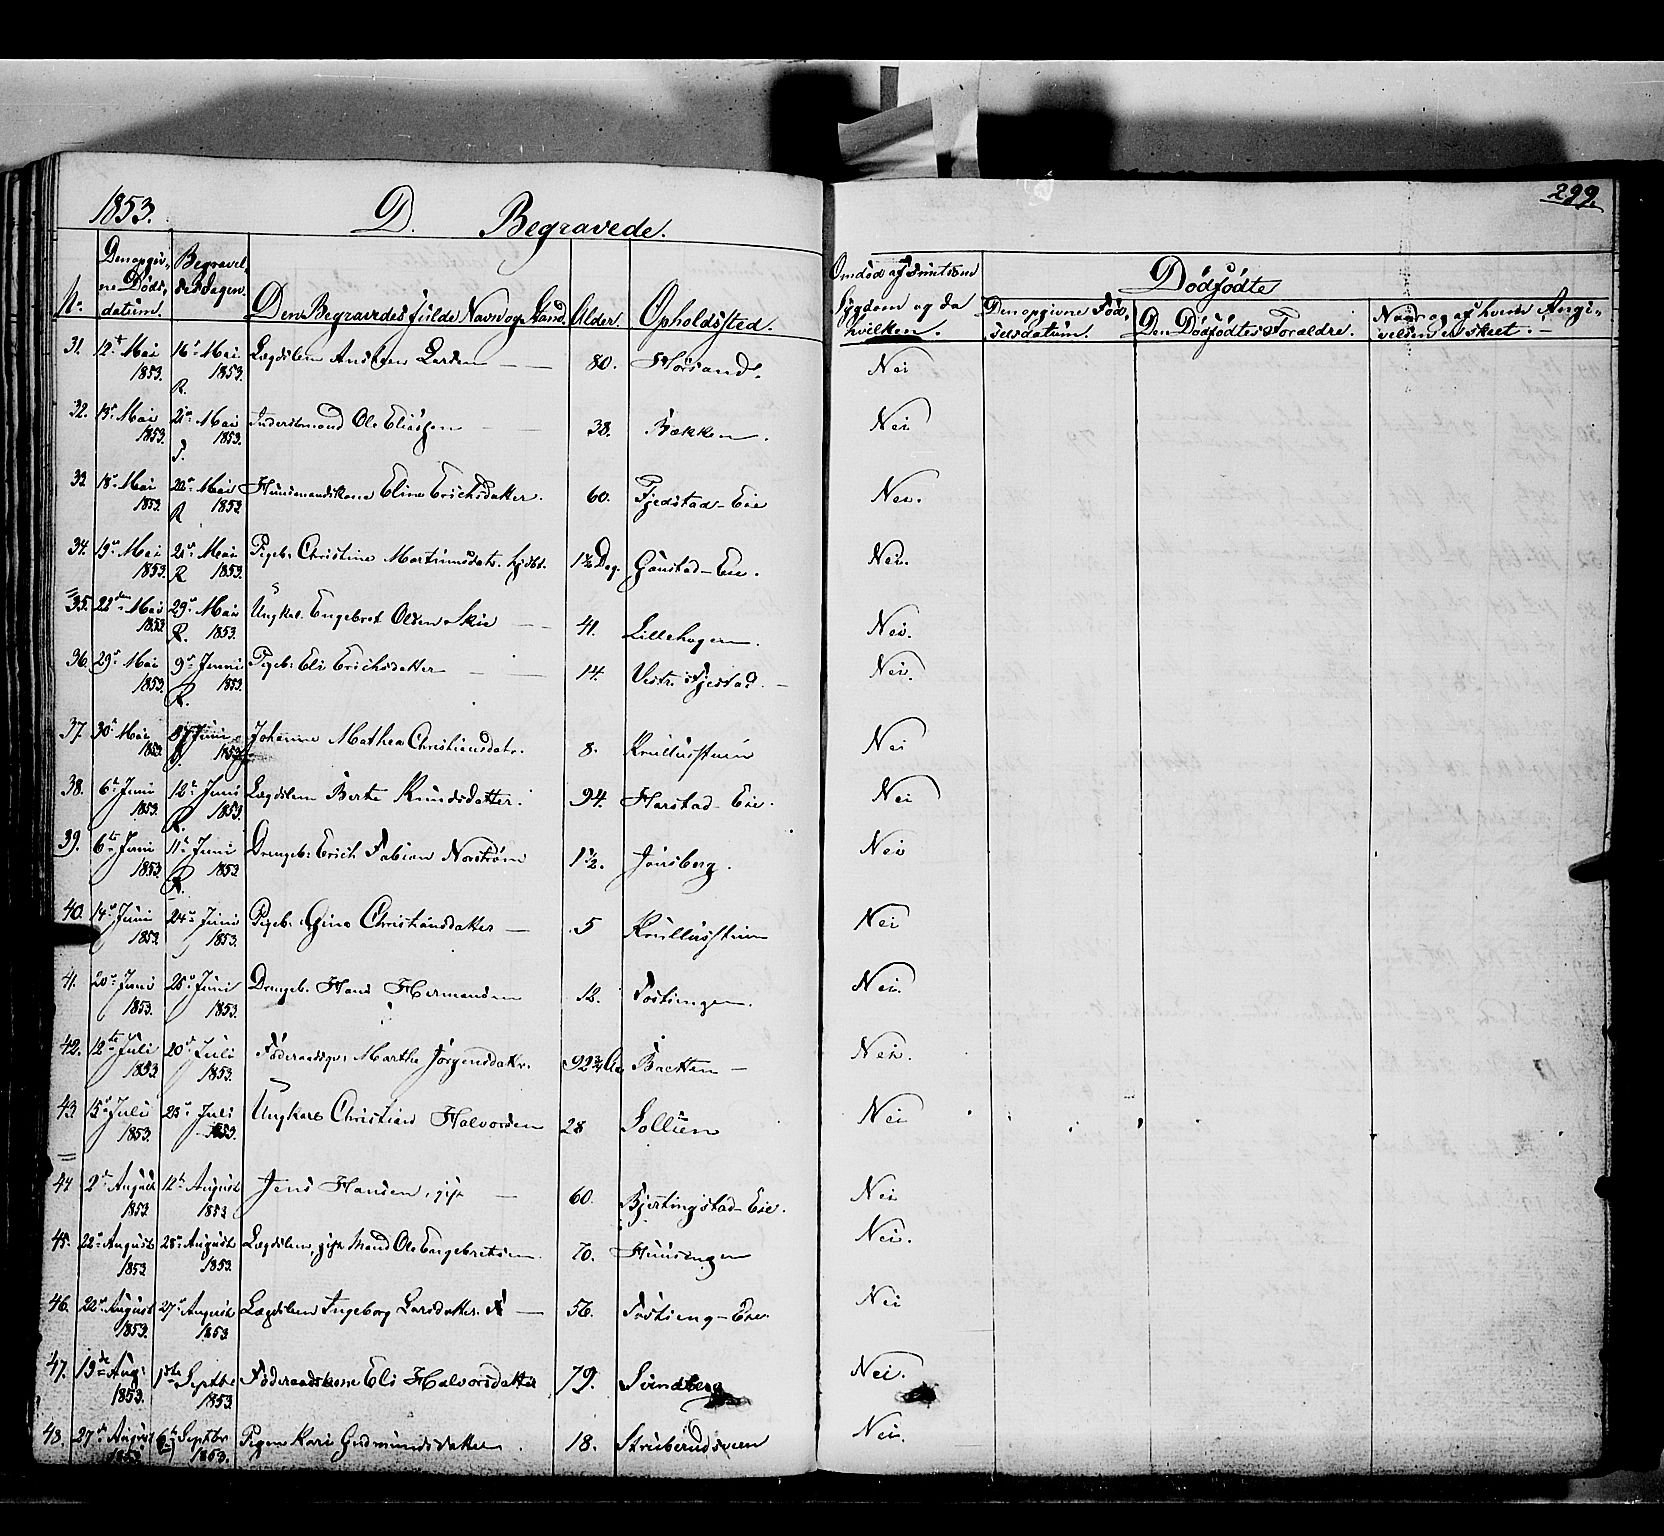 1853. D. Begravede. 299.
No. Den opgivne Døds-datum. Begravelsesdagen. Den Begravedes fulde Navn og Stand. Alder. Opholdsted. Om død af smitsom Sygdom og da hvilken. Dødfødte
Den opgivne Fødselsdatum. Den Dødfødtes Forældre. Naar og af hvem Angivelsen er skeet.
31. 12te Mai 1853. 16de Mai 1853. R. Lægdslem Larsen 80. Nei
32. Mai 1853. Mai 1853. Inderstmand Ole Eliasen 38. Bækken. Nei
33 18de Mai 1853. Mai 1853 R Huusmandskone Eline Erichsdatter. 60. Fjedstad-Eie Nei.
34. 19de Mai 1853. Mai 1853. R Pigeb. Christine Martinusdatr. hjdbt. 1½ Dag. Gaustad-Eie. Nei.
35. 22de Mai 1853 29de Mai 1853. R. Ungkal. Engebret Olsen Skie 41. Lillehagen. Nei.
36. 29de Mai 1853. 9de Junni 1853. R. Pigeb. Eli Erichsdatter 14. Vestre Fjestad. Nei.
37. 30te Mai 1853. Juni 1853 Johanne Mathea Christiansdatr. 8. Nei
38. 6te Juni 1853. 12te Juni 1853. R. Lægdslem Berte Knudsdatter. 94. Harstad-Eie. Nei
39. 6te Juni 1853. 11te Juni 1853 R. Drengeb. Erich Fabian Norstrøm 1½. Jønsberg. Nei
40. 14de Juni 1853. 24de Juni 1853. Pigeb. Gina Christiansdatter 5 Nei
41. 20de Juni 1853. Juni 1853. Drengeb. Hans Hermansen 12. Nei.
42. 12te Juli 1853 20de Juli 1853. Marthe Jørgensdatr. 92¾ Aar Bakken Nei.
43. 15de Juli 1853. 23de Juli 1853. Ungkarl Christian Halvorsen 28 Sollien Nei
44 2de August 1853. 12te August 1853 Jens Hansen, gift 60. Bjertingstad-Eie. Nei
45. August 1853 28de August 1853. Lægdslem, gift Mand Ole Engebretsen 70. Huusengen Nei.
46. August 1853. 27de August 1853 Lægdslem Ingeborg Larsdatter. 56. Nei
47. 19de Aug. 1853. 1ste Septbr 1853 Føderaadskone Eli Halvorsdatter 79. Svindberg Nei.
48. 27de August 1853 6te Septbr 1853. Pigen Kari Gudmundsdatter. 18. Nei.